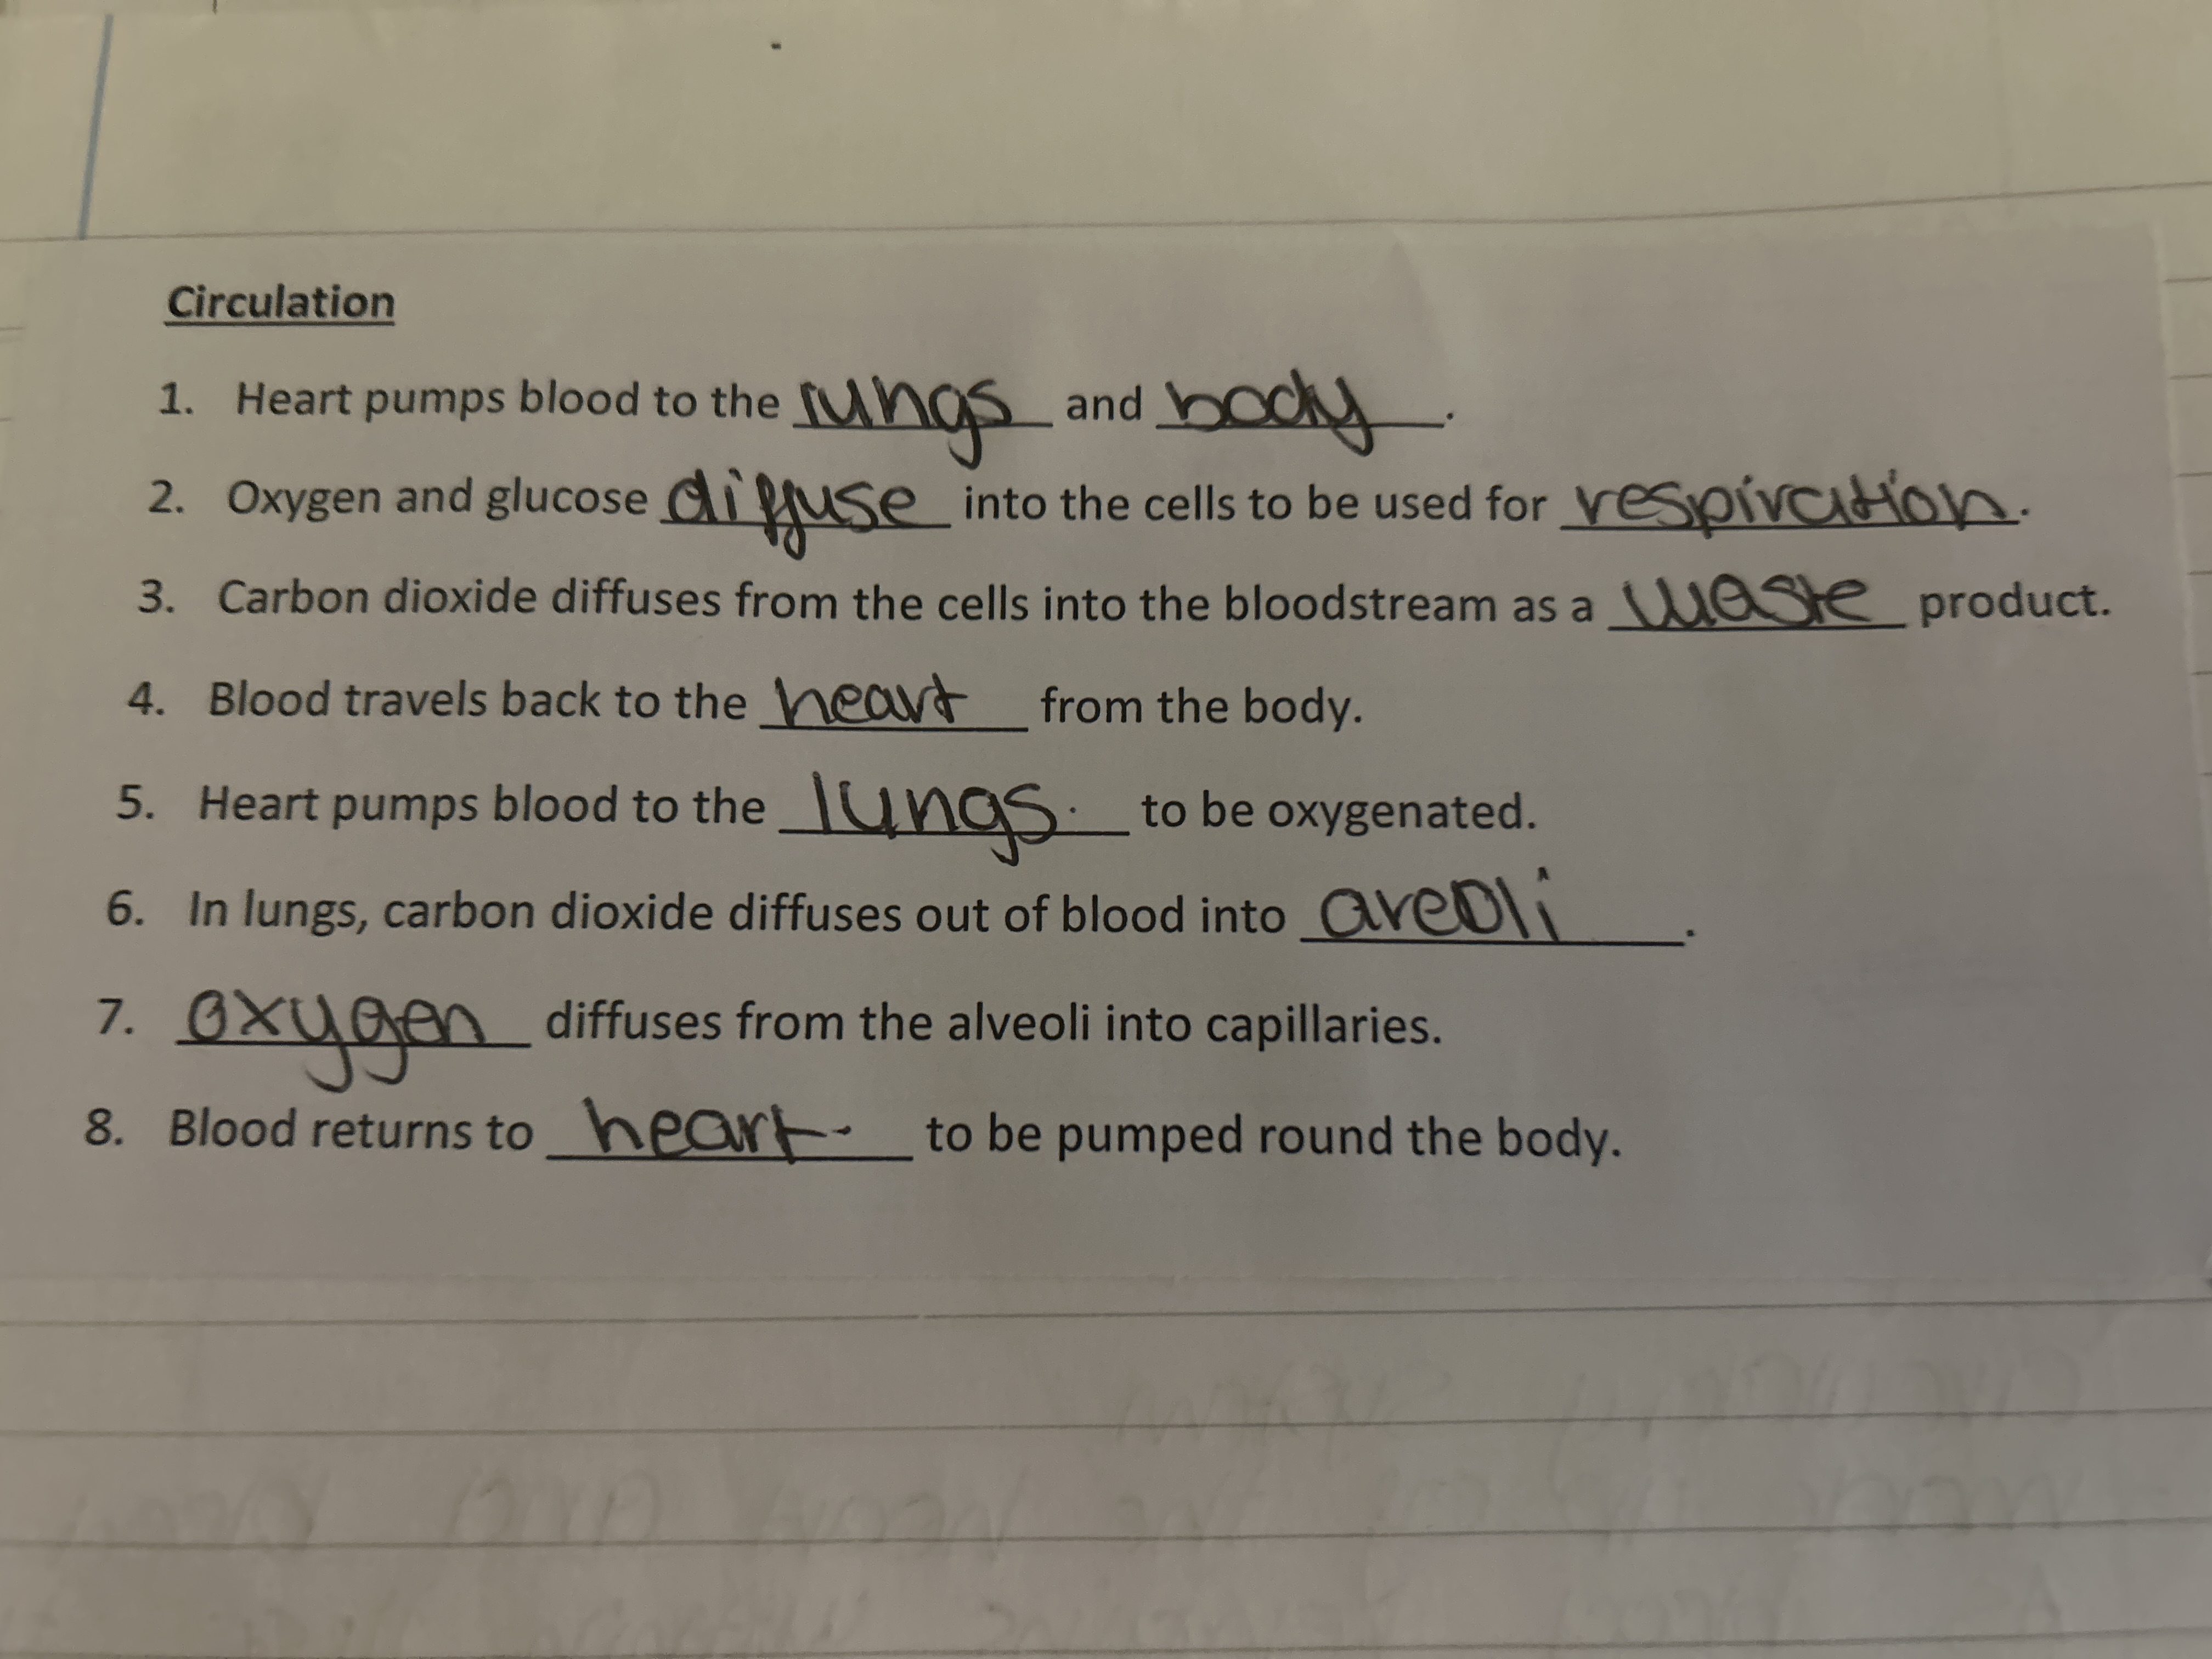 Circulation
1. Heart pumps blood to the lungs and body.
2. Oxygen and glucose diffuse into the cells to be used for respiration.
3. Carbon dioxide diffuses from the cells into the bloodstream as a waste product.
4. Blood travels back to the heart from the body.
5. Heart pumps blood to the lungs. to be oxygenated.
6. In lungs, carbon dioxide diffuses out of blood into areoli.
7. oxygen diffuses from the alveoli into capillaries.
8. Blood returns to heart to be pumped round the body.